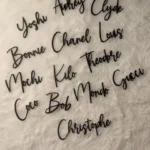 Yoshi Audrey Clyde
Bonnie Chanel Louis
Mochi Kilo Theodore
Coco Bob Mondo Gucci
Christophe